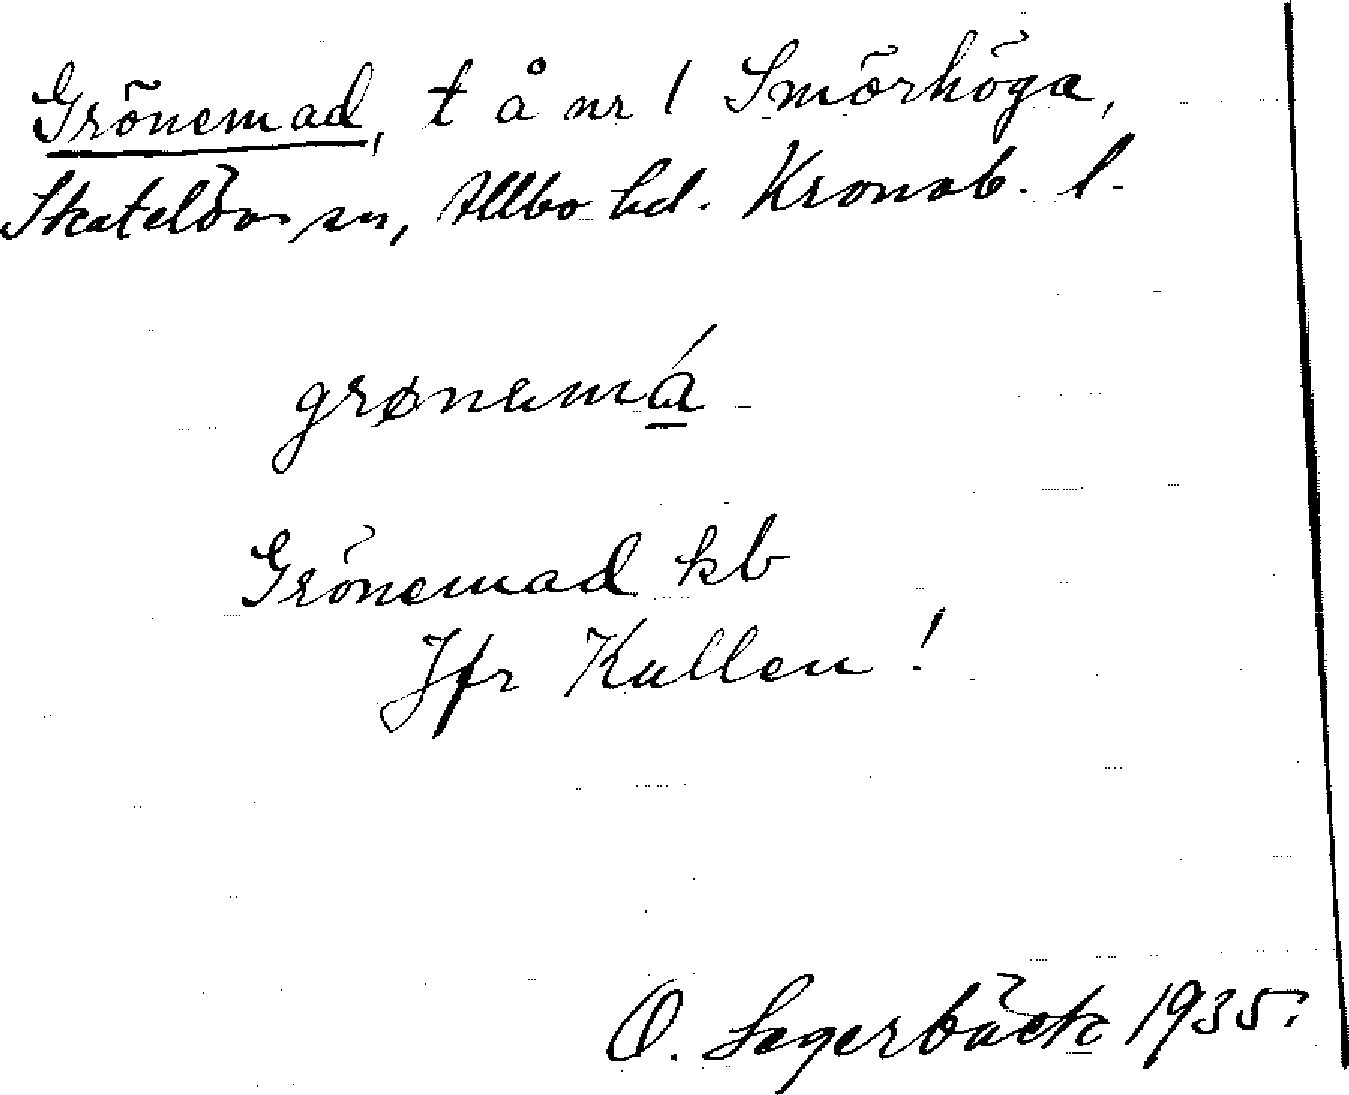 Grönemad, t å nr 1 Smörhöga,
Skatelövs sn, Allbo hd. Kronob. l.
grønemá
Grönemad kb
Jfr Kullen!
O. Segerbäck 1935.